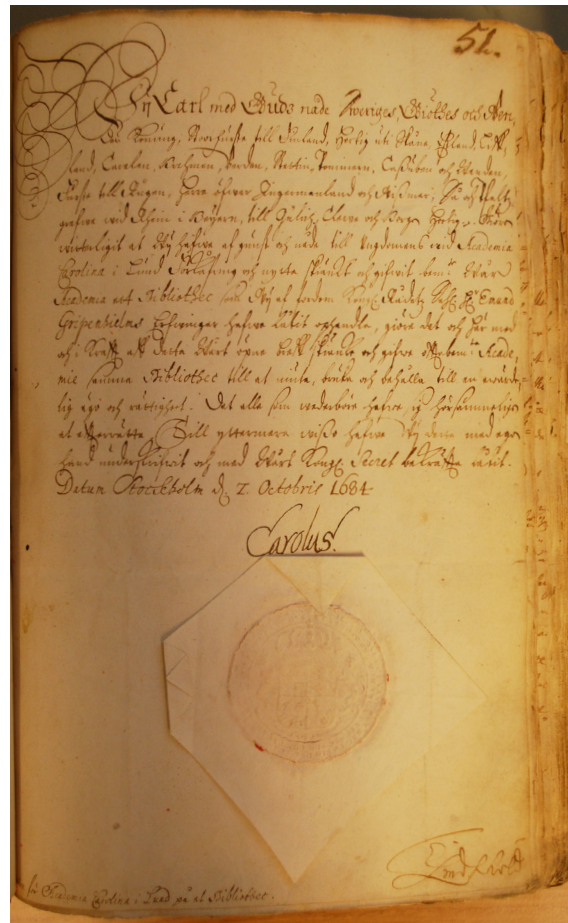 51.
Wij Carl med Guds nåde Sweriges Giöthes och Wen,
des Konung, Storfurste till Finland, Hertig uti Skåne, Estland, Liff,
land, Carelen, Brehmen, Verden, Stettin, Pommern, Cassuben och Wenden,
Furste till Rügen, Herre öfwer Ingermanland och Wissmar; Så och Pfaltz
grefwe wid Rhein i Beyern, till Gülich, Cleve och Bergen Hertig. Giöre
witterligit at Wij hafwe af gunst och nåde till Ungdomens wid Academia
Carolina i Lund förkofring och nytta skänkt och gifwit Wår
Academia ett Bibliothec som Wij af fordom Kongl. Rådetz
Gripenhielms Erfwingar hafwe låtit ophandla, giöre det och här med
och i Krafft af detta Wårt öpne bref skänke och gifwe Acade,
mie samma Bibliothec till at niuta, bruka och behålla till en ewärde,
lig ägo och rättighet. Det alla som wederbör hafwe sig hörsammeligen
at efterrätta. Till yttermera wisso hafwe Wij detta med egen
hand underskrifwit och med Wårt Kongl. Secret bekräffta låtit.
Datum Stockholm d. 7. Octobris 1684.
Carolus.
Lindhielm
Academia Carolina i Lund på et Bibliothec.